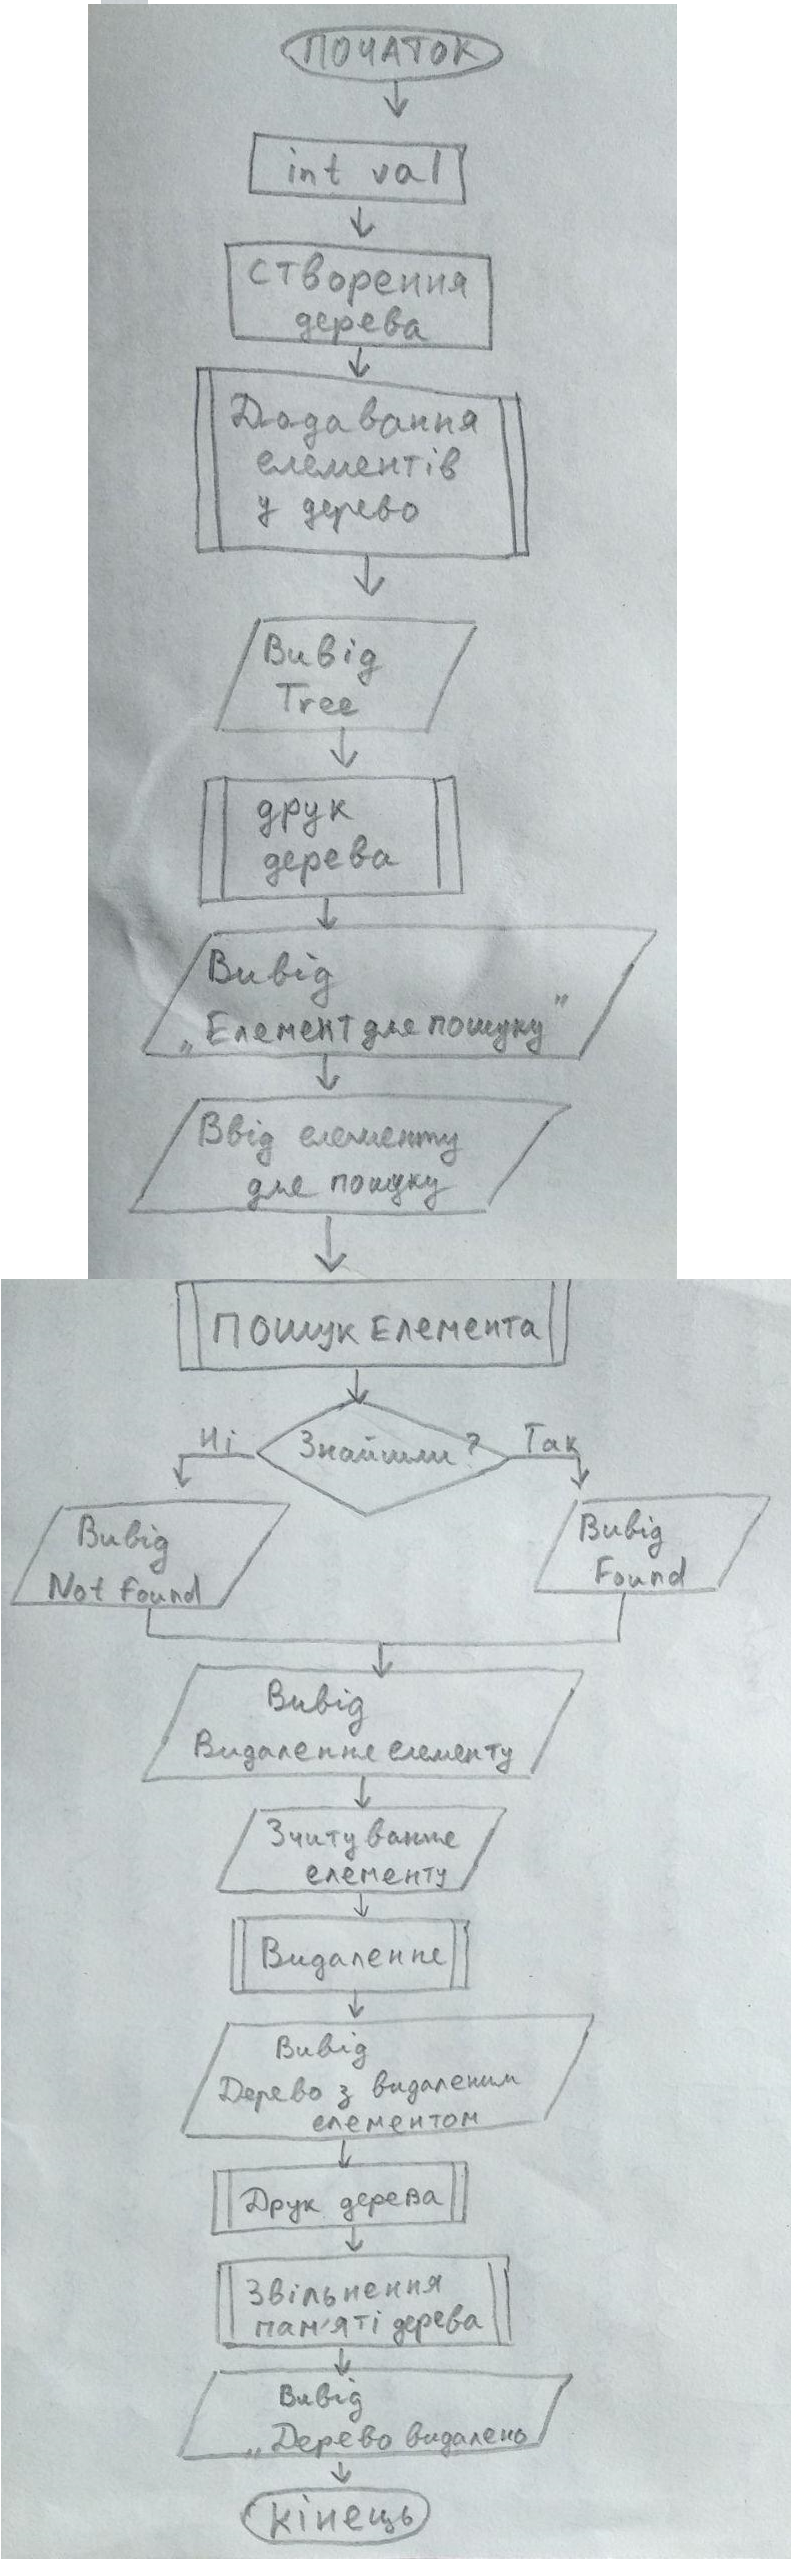 ПОЧАТОК
int val
Створення
дерева
Додавання
елементів
у дерево
Вивід
Tree
друк
дерева
Вивід
„Елемент для пошуку"
Ввід елементу
для пошуку
Пошук Елемента
Ні
Знайшли?
Так
Вивід
Not found
Вивід
Found
Вивід
Видалення елементу
Зчитування
елементу
Видалення
Вивід
Дерево з видаленим
елементом
Друк дерева
Звільнення
пам'яті дерева
Вивід
„Дерево видалень
кінець